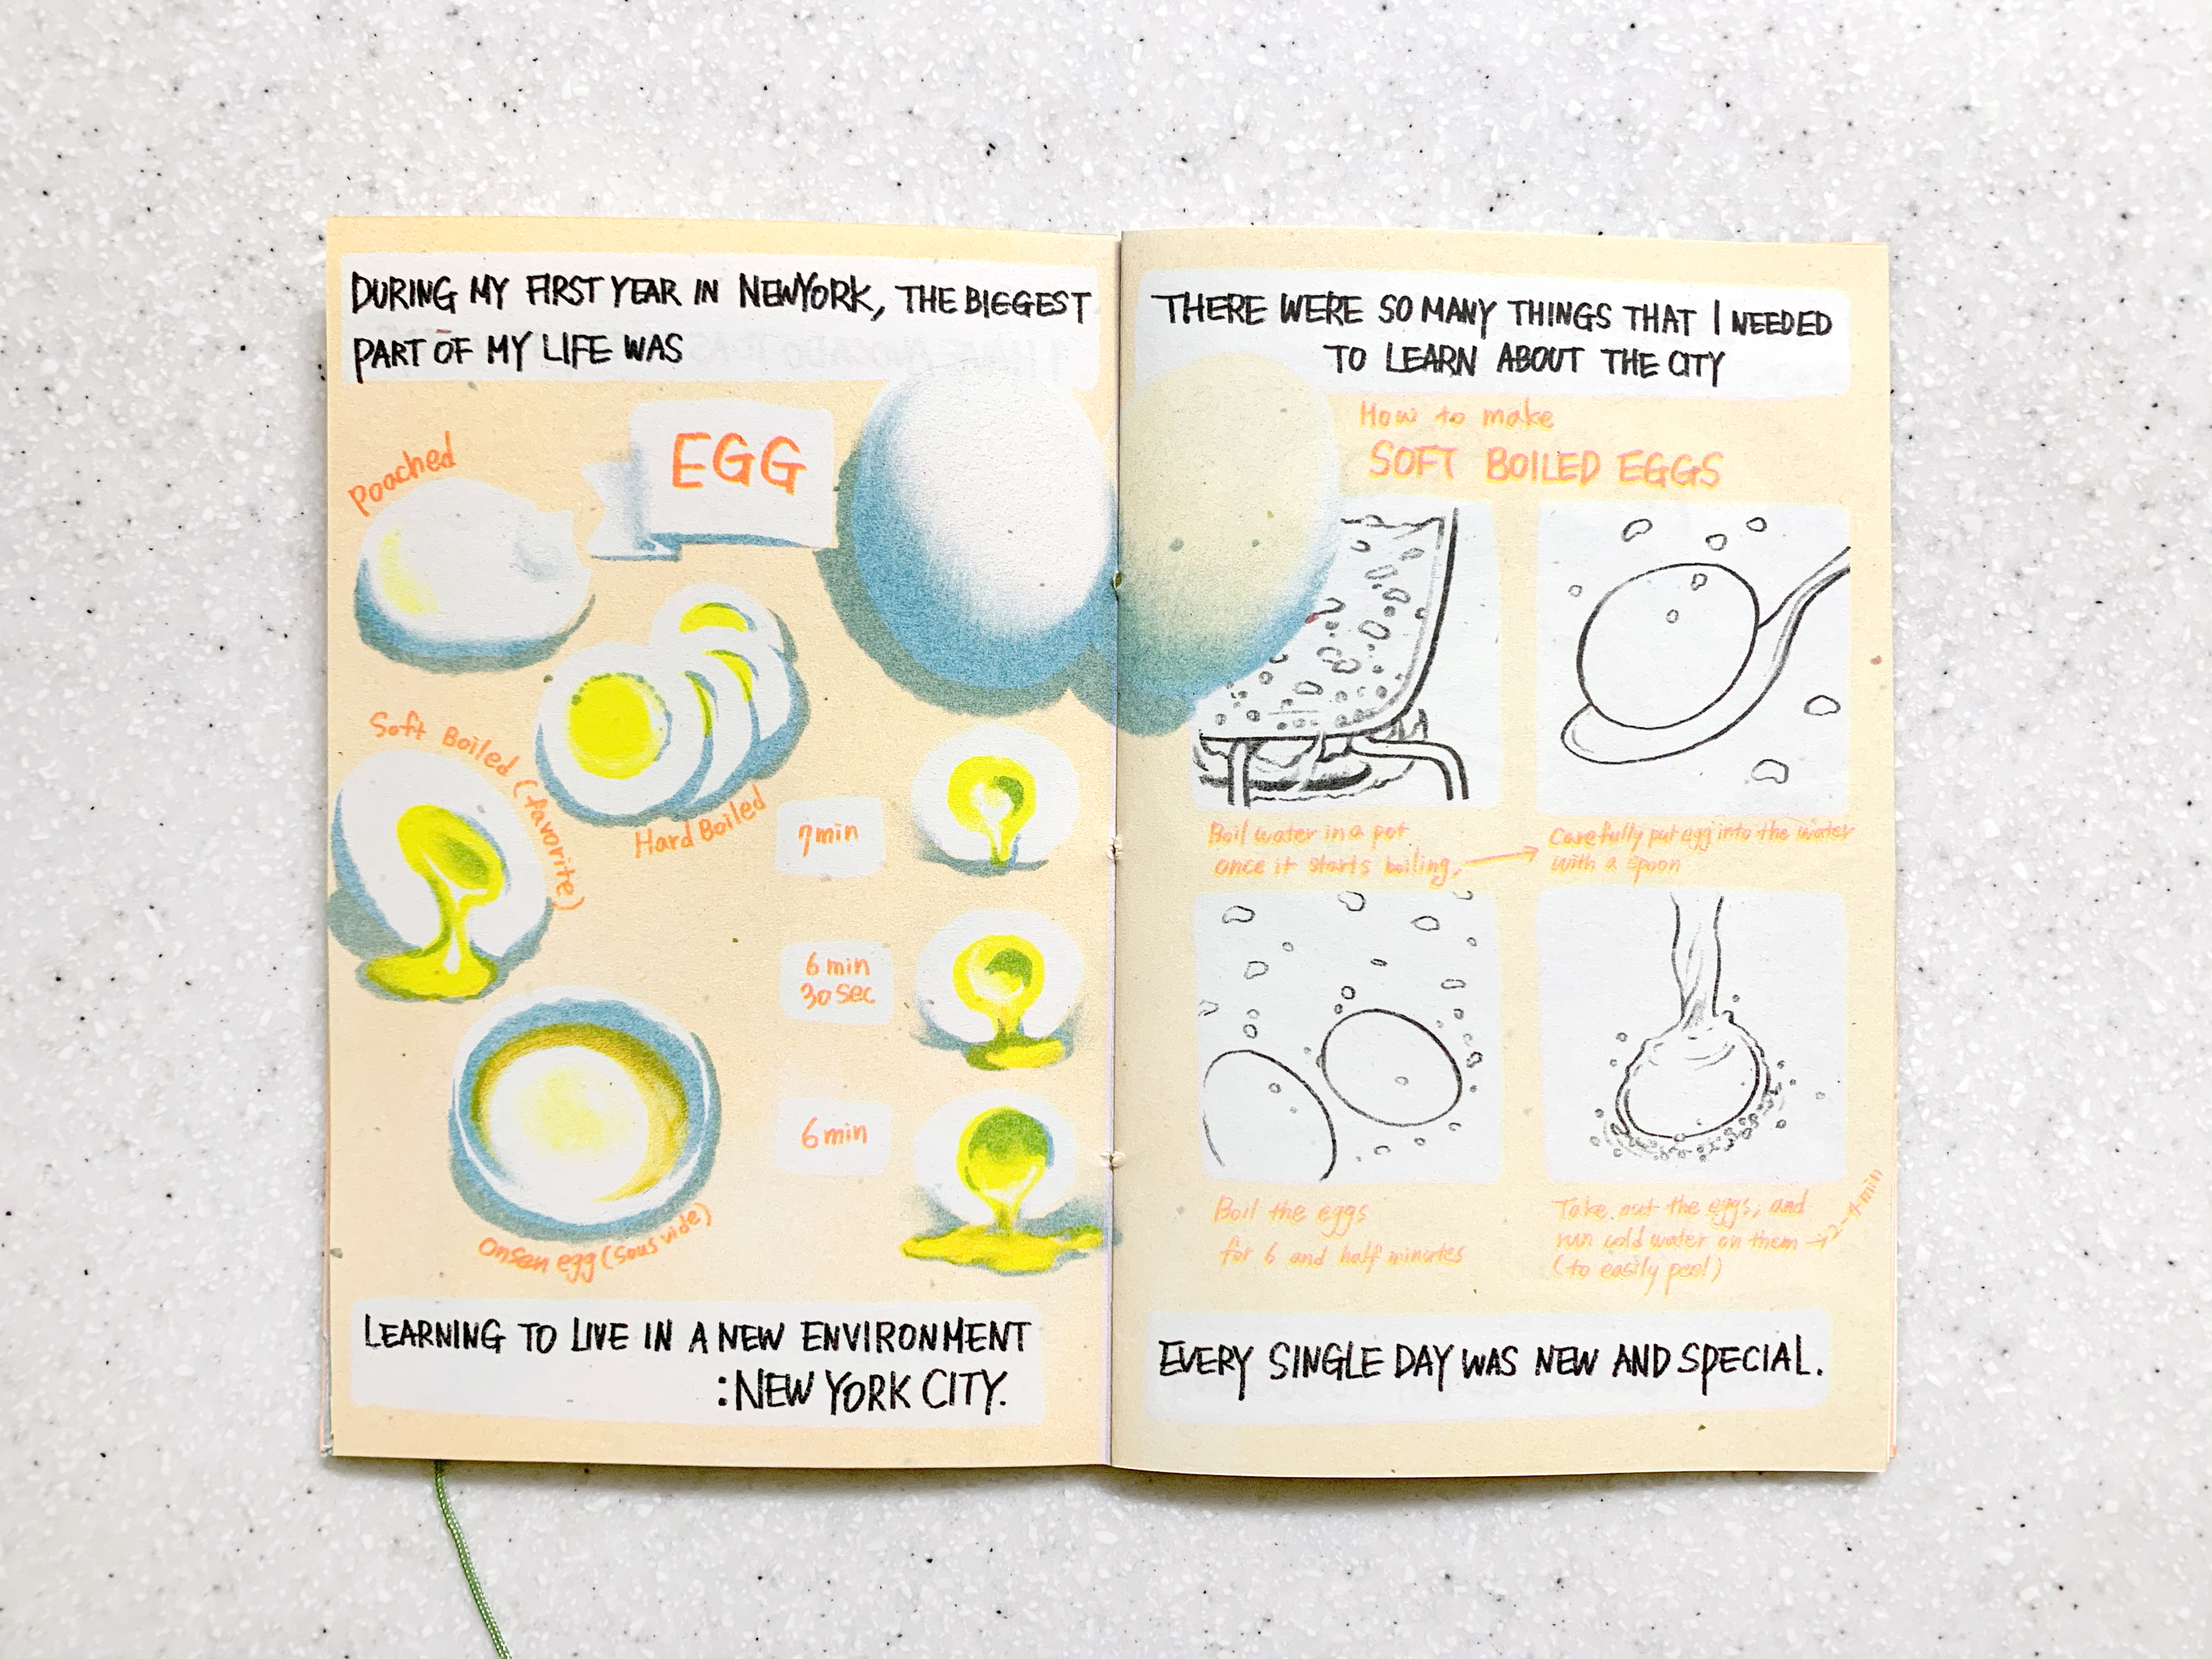 DURING MY FIRST YEAR IN NEWYORK, THE BIGGEST
PART OF MY LIFE WAS
EGG
Poached
Soft Boiled (favorite)
Hard Boiled
7min
6 min
30sec
6min
onsen egg (sous vide)
LEARNING TO LIVE IN A NEW ENVIRONMENT
:NEW YORK CITY.
THERE WERE SO MANY THINGS THAT I NEEDED
TO LEARN ABOUT THE CITY
How to make
SOFT BOILED EGGS
Boil water in a pot
once it starts boiling, →
Carefully put egg into the water
with a spoon
Boil the eggs
for 6 and half minutes
Take out the eggs, and
run cold water on them →
(to easily peel)
EVERY SINGLE DAY WAS NEW AND SPECIAL.